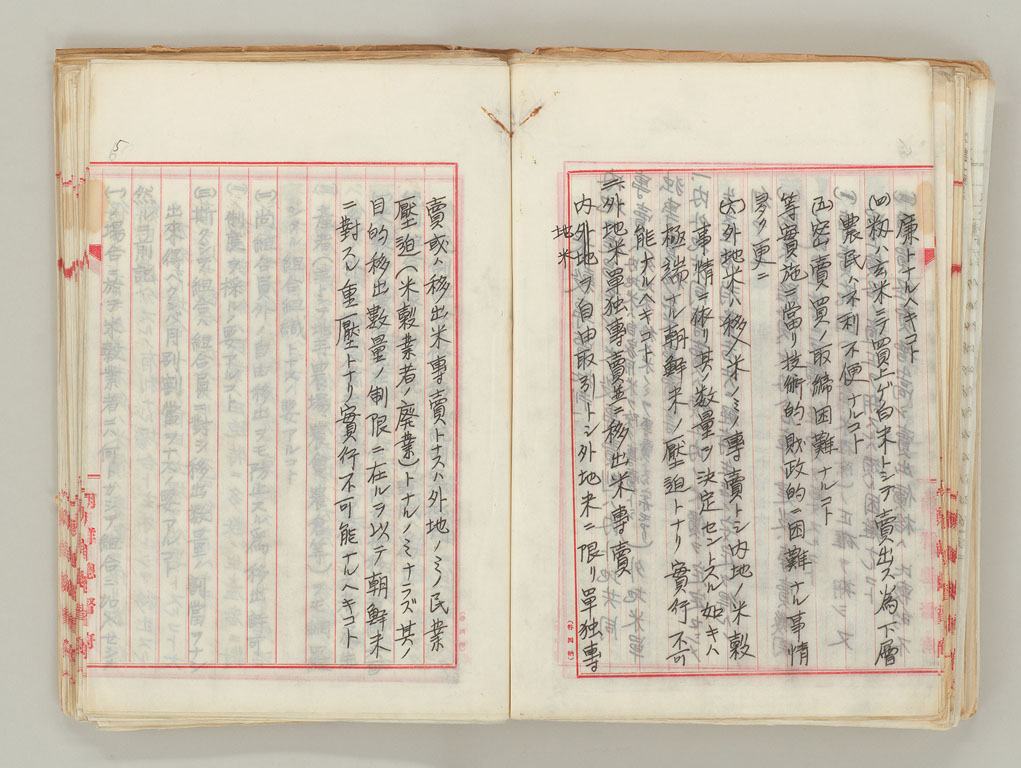 廉ナルヘキコト
(四)籾ハ玄米ニテ買上ゲ白米トシテ賣出ス為下層
農民ハ不利不便ナルコト
(五)密賣買ノ取締困難ナルコト
等實施ニ當リ技術的、財政的ニ困難ナル事情
多ク更ニ
(六)外地米ハ移入米ノミノ專賣トシ内地ノ米穀
事情ニ依リ其ノ数量ヲ決定セントスル如キハ
極端ナル朝鮮米ノ壓迫トナリ實行不可
能ナルヘキコト
二、外地米單独專賣並ニ移出米專賣
内外地ヲ自由取引トシ外地米ニ限リ單独專
地米
賣或ハ移出米專賣トスハ外地ノミノ民業
壓迫(米穀業者ノ廃業)トナルノミナラズ其ノ
目的移出数量ノ制限ニ在ルヲ以テ朝鮮米
ニ對スル重壓トナリ實行不可能ナルヘキコト
5
朝鮮總督府